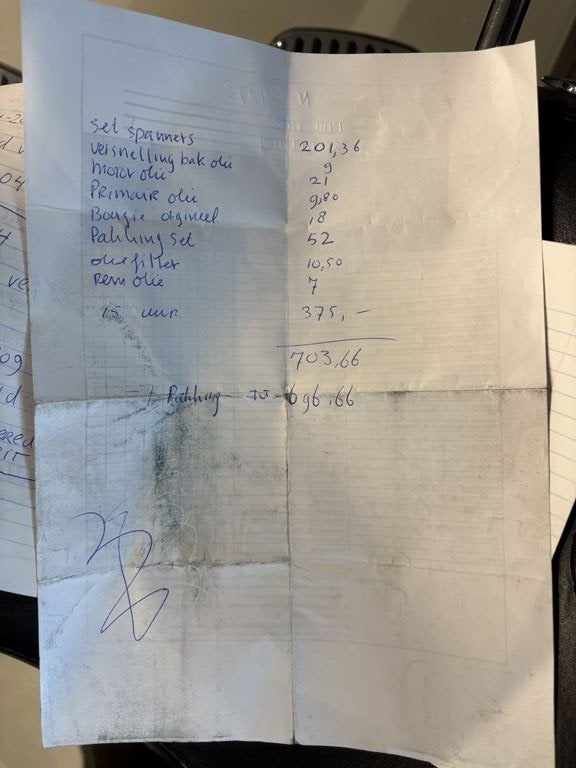 set spanners 201,36
versnelling bak olie 9
motor olie 21
Primair olie 9,80
Bougie orgineel 18
Pakking set 52
olie filter 10,50
Rem olie 7
15 uur 375,-
703,66
Pakking 696,66